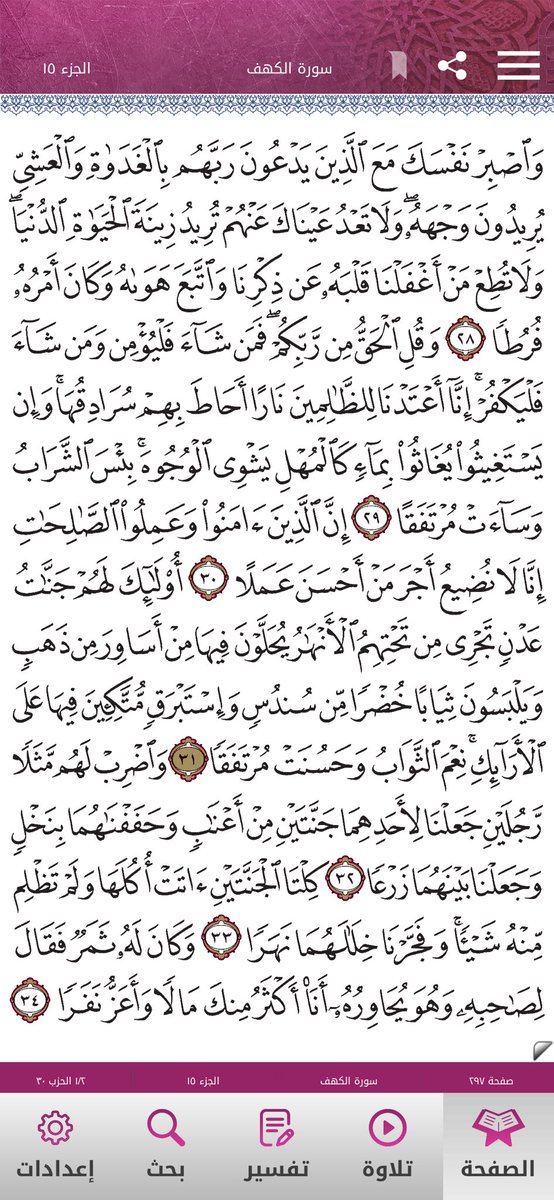 سورة الكهف الجزء ١٥
وَٱصۡبِرۡ نَفۡسَكَ مَعَ ٱلَّذِينَ يَدۡعُونَ رَبَّهُم بِٱلۡغَدَوٰةِ وَٱلۡعَشِيِّ
يُرِيدُونَ وَجۡهَهُۥۖ وَلَا تَعۡدُ عَيۡنَاكَ عَنۡهُمۡ تُرِيدُ زِينَةَ ٱلۡحَيَوٰةِ ٱلدُّنۡيَاۖ
وَلَا تُطِعۡ مَنۡ أَغۡفَلۡنَا قَلۡبَهُۥ عَن ذِكۡرِنَا وَٱتَّبَعَ هَوَىٰهُ وَكَانَ أَمۡرُهُۥ
فُرُطٗا ٢٨ وَقُلِ ٱلۡحَقُّ مِن رَّبِّكُمۡۖ فَمَن شَآءَ فَلۡيُؤۡمِن وَمَن شَآءَ
فَلۡيَكۡفُرۡۚ إِنَّآ أَعۡتَدۡنَا لِلظَّٰلِمِينَ نَارًا أَحَاطَ بِهِمۡ سُرَادِقُهَاۚ وَإِن
يَسۡتَغِيثُواْ يُغَاثُواْ بِمَآءٖ كَٱلۡمُهۡلِ يَشۡوِي ٱلۡوُجُوهَۚ بِئۡسَ ٱلشَّرَابُ
وَسَآءَتۡ مُرۡتَفَقًا ٢٩ إِنَّ ٱلَّذِينَ ءَامَنُواْ وَعَمِلُواْ ٱلصَّٰلِحَٰتِ
إِنَّا لَا نُضِيعُ أَجۡرَ مَنۡ أَحۡسَنَ عَمَلًا ٣٠ أُوْلَٰٓئِكَ لَهُمۡ جَنَّٰتُ
عَدۡنٖ تَجۡرِي مِن تَحۡتِهِمُ ٱلۡأَنۡهَٰرُ يُحَلَّوۡنَ فِيهَا مِنۡ أَسَاوِرَ مِن ذَهَبٖ
وَيَلۡبَسُونَ ثِيَابًا خُضۡرٗا مِّن سُندُسٖ وَإِسۡتَبۡرَقٖ مُّتَّكِـِٔينَ فِيهَا عَلَى
ٱلۡأَرَآئِكِۚ نِعۡمَ ٱلثَّوَابُ وَحَسُنَتۡ مُرۡتَفَقٗا ٣١ وَٱضۡرِبۡ لَهُم مَّثَلٗا
رَّجُلَيۡنِ جَعَلۡنَا لِأَحَدِهِمَا جَنَّتَيۡنِ مِنۡ أَعۡنَٰبٖ وَحَفَفۡنَٰهُمَا بِنَخۡلٖ
وَجَعَلۡنَا بَيۡنَهُمَا زَرۡعٗا ٣٢ كِلۡتَا ٱلۡجَنَّتَيۡنِ ءَاتَتۡ أُكُلَهَا وَلَمۡ تَظۡلِم
مِّنۡهُ شَيۡـٔٗاۚ وَفَجَّرۡنَا خِلَٰلَهُمَا نَهَرٗا ٣٣ وَكَانَ لَهُۥ ثَمَرٞ فَقَالَ
لِصَٰحِبِهِۦ وَهُوَ يُحَاوِرُهُۥٓ أَنَا۠ أَكۡثَرُ مِنكَ مَالٗا وَأَعَزُّ نَفَرٗا ٣٤
صفحة ٢٩٧ سورة الكهف الجزء ١٥ ١/٢ الحزب ٣٠
الصفحة تلاوة تفسير بحث إعدادات